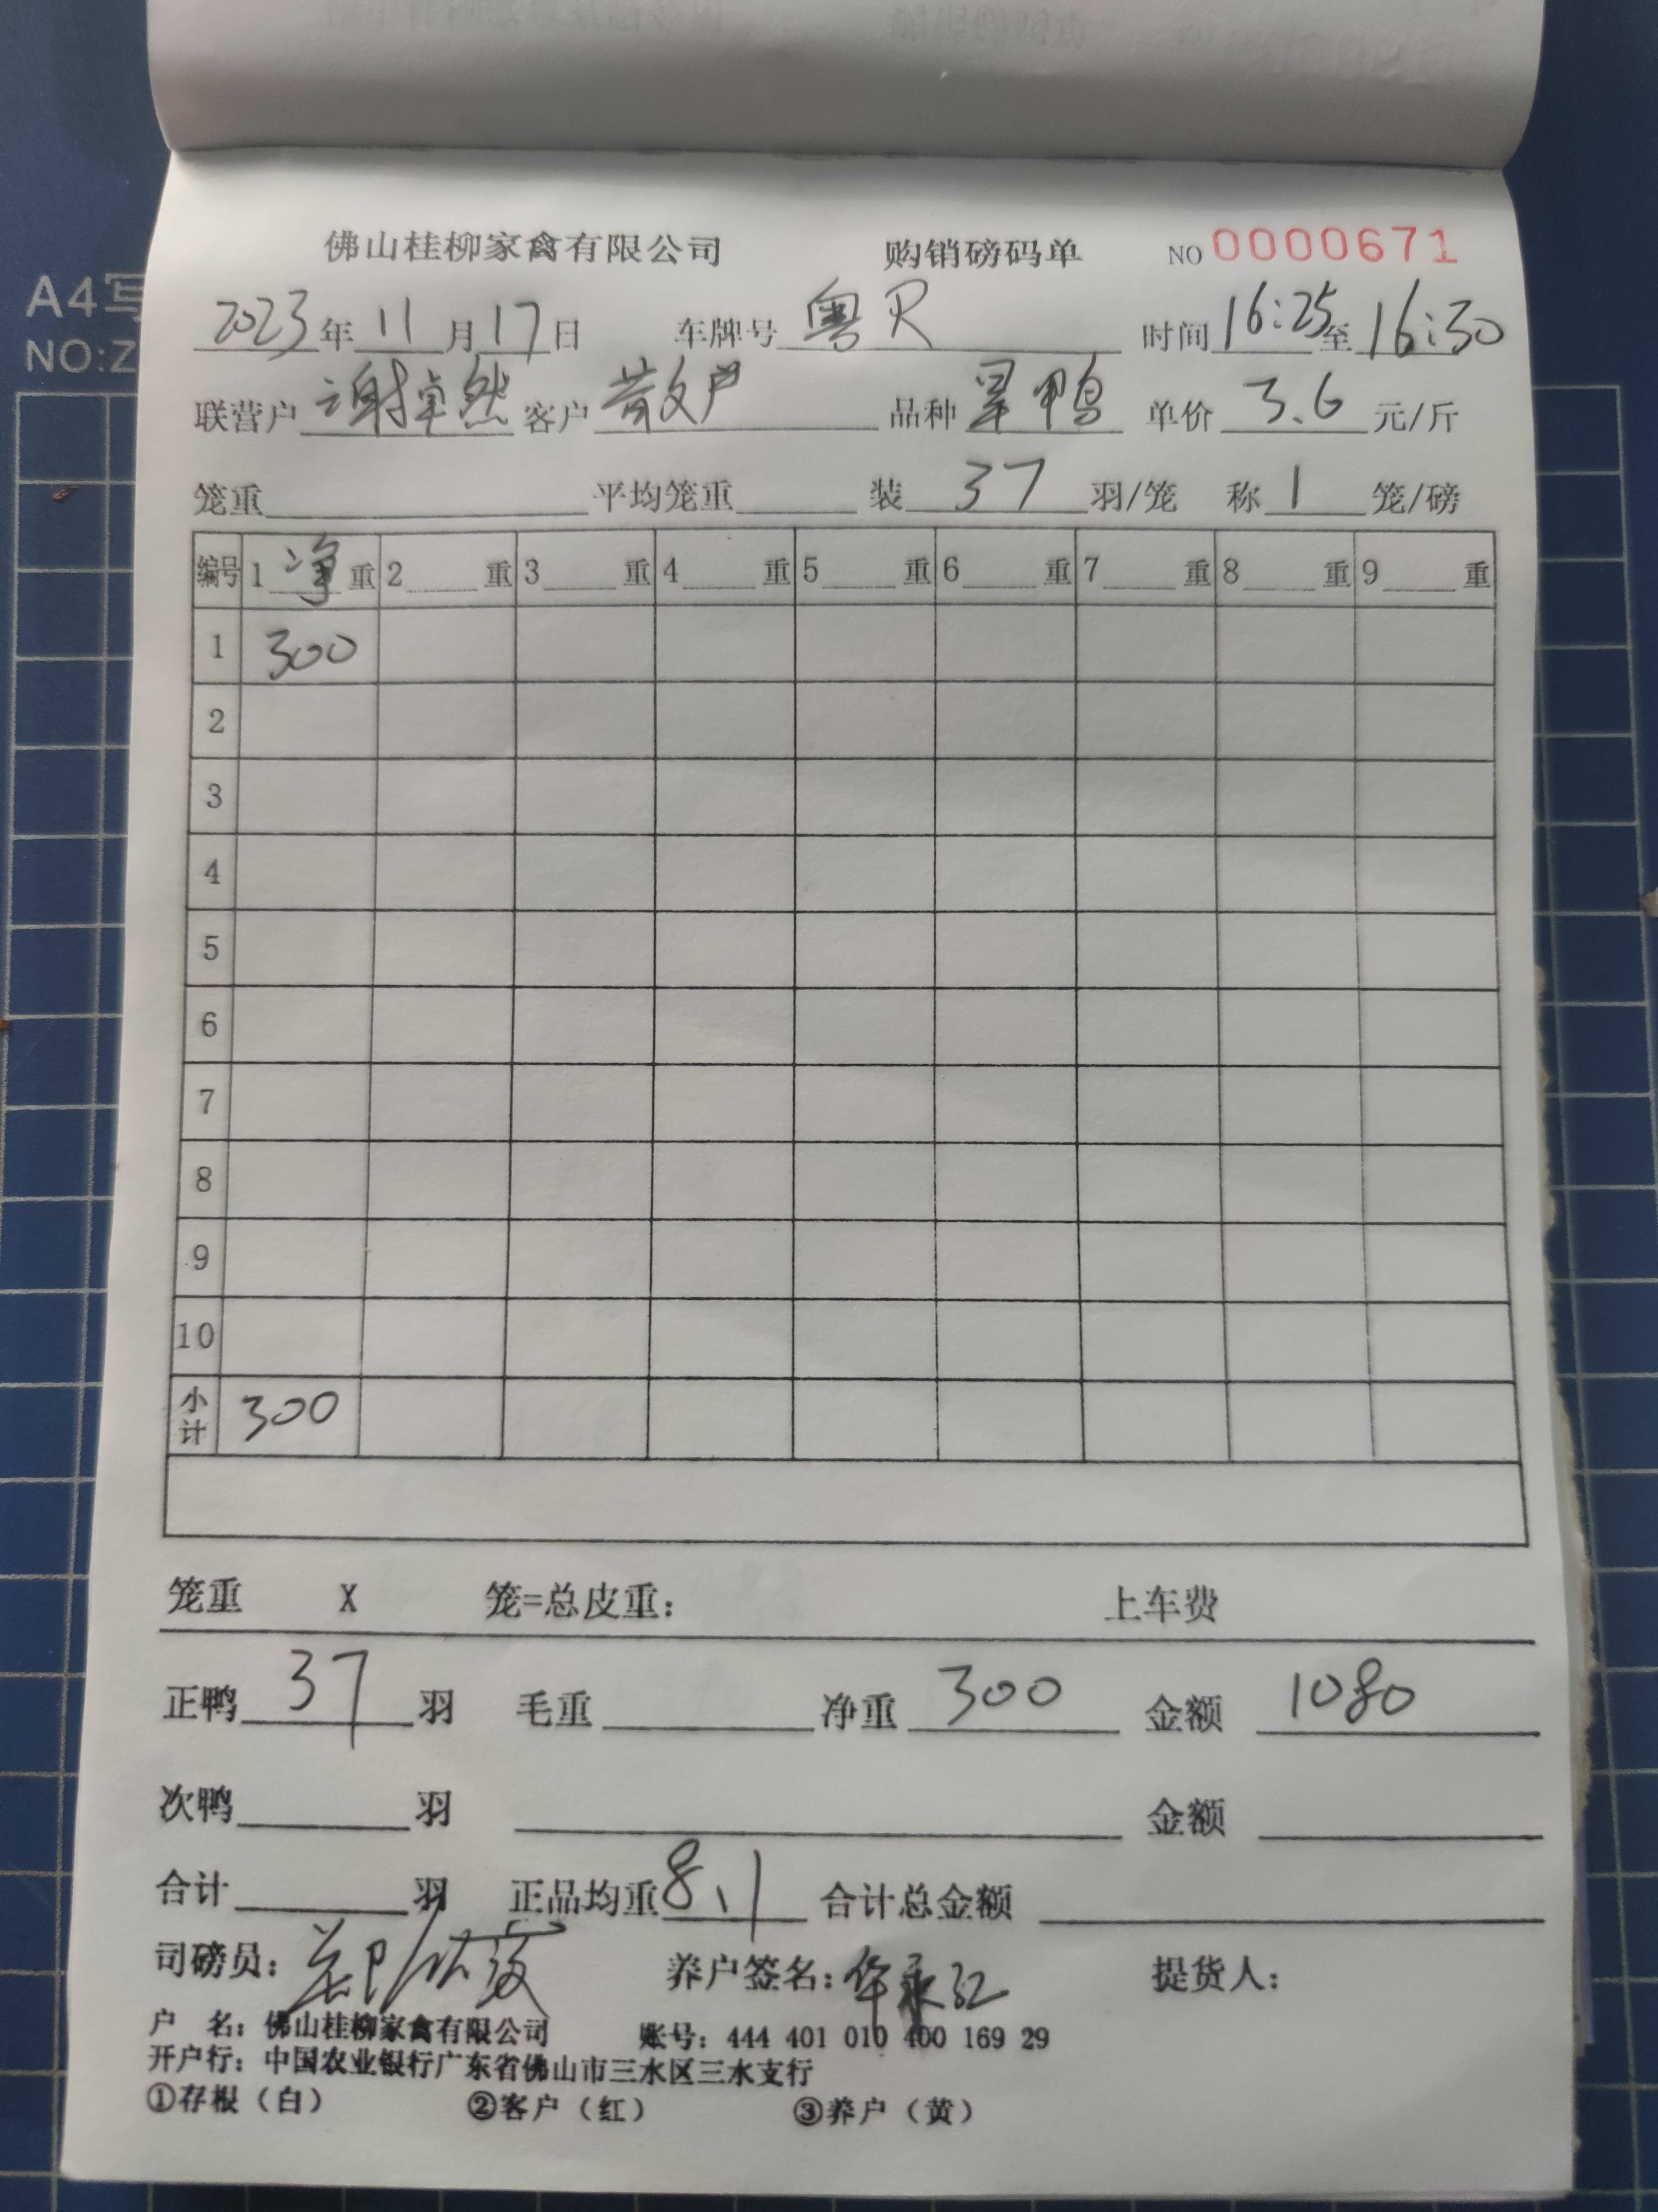 A4写
NO:Z
佛山桂柳家禽有限公司 购销磅码单 NO 0000671
2023年11月17日 车牌号 粤R 时间16:25至16:30
联营户 谢卓然 客户 散户 品种 旱鸭 单价 3.6 元/斤
笼重 平均笼重 装 37 羽/笼 称 1 笼/磅
编号 1 净 重 2 重 3 重 4 重 5 重 6 重 7 重 8 重 9 重
1 300
2
3
4
5
6
7
8
9
10
小计 300
笼重 X 笼=总皮重: 上车费
正鸭 37 羽 毛重 净重 300 金额 1080
次鸭 羽 金额
合计 羽 正品均重 8.1 合计总金额
司磅员: 养户签名:华永红 提货人:
户 名: 佛山桂柳家禽有限公司 账号: 444 401 010 400 169 29
开户行: 中国农业银行广东省佛山市三水区三水支行
①存根（白） ②客户（红） ③养户（黄）